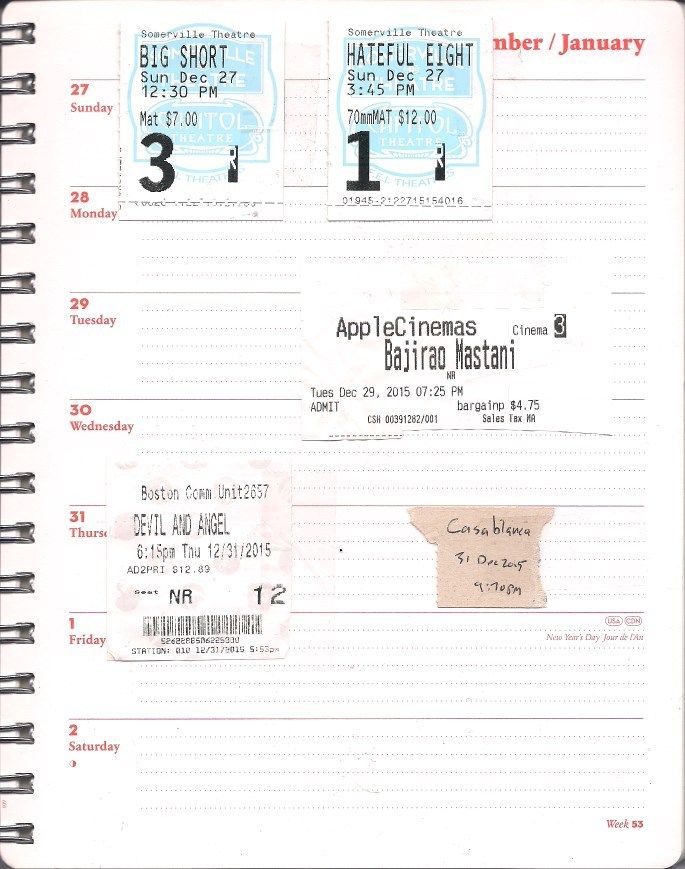 mber / January
27
Sunday
Somerville Theatre
BIG SHORT
Sun Dec 27
12:30 PM
Mat $7.00
CAPITOL
THEATRE
3 R
THEATRE
Somerville Theatre
HATEFUL EIGHT
Sun Dec 27
3:45 PM
70mmMAT $12.00
CAPITOL
THEATRE
1 R
THEATRES
01945-2122715154016
28
Monday
29
Tuesday
AppleCinemas Cinema 3
Bajirao Mastani
NR
Tues Dec 29, 2015 07:25 PM
ADMIT bargainp $4.75
CSH 00391282/001 Sales Tax MA
30
Wednesday
31
Thurs
Boston Comm Unit2657
DEVIL AND ANGEL
6:15pm Thu 12/31/2015
AD2PRI $12.89
Seat NR 12
STATION: 010 12/31/2015 5:53pm
Casablanca
31 Dec 2015
9:70pm
1
Friday
USA CDN
New Year's Day Jour de l'An
2
Saturday
Week 53